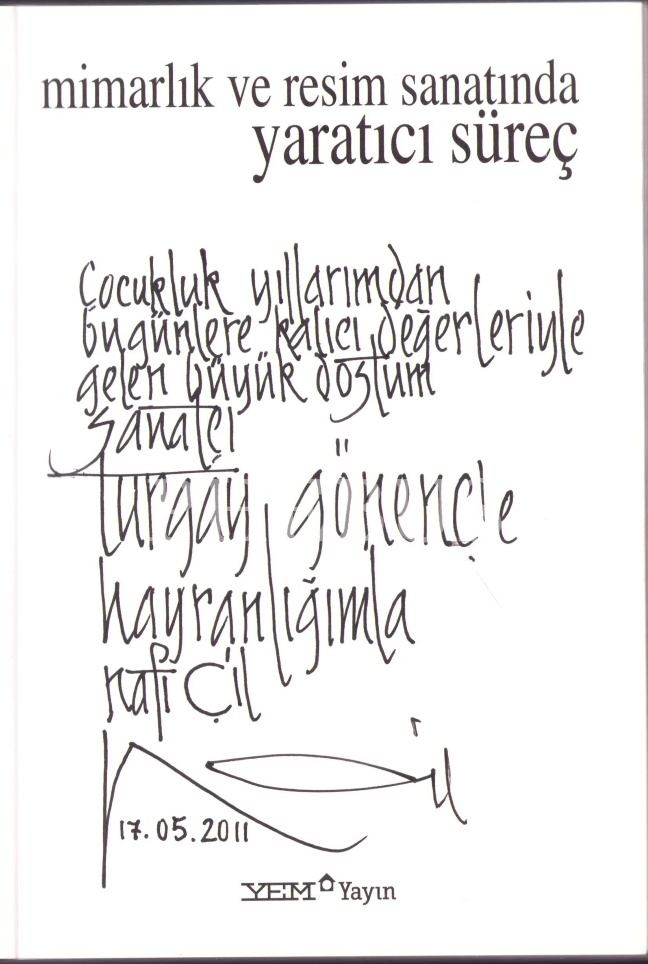 mimarlık ve resim sanatında
yaratıcı süreç
Çocukluk yıllarımdan
bugünlere kalıcı değerleriyle
gelen büyük dostum
sanatçı
Turgay gönenç'e
hayranlığımla
nafi Çil
17.05.2011
YEM Yayın